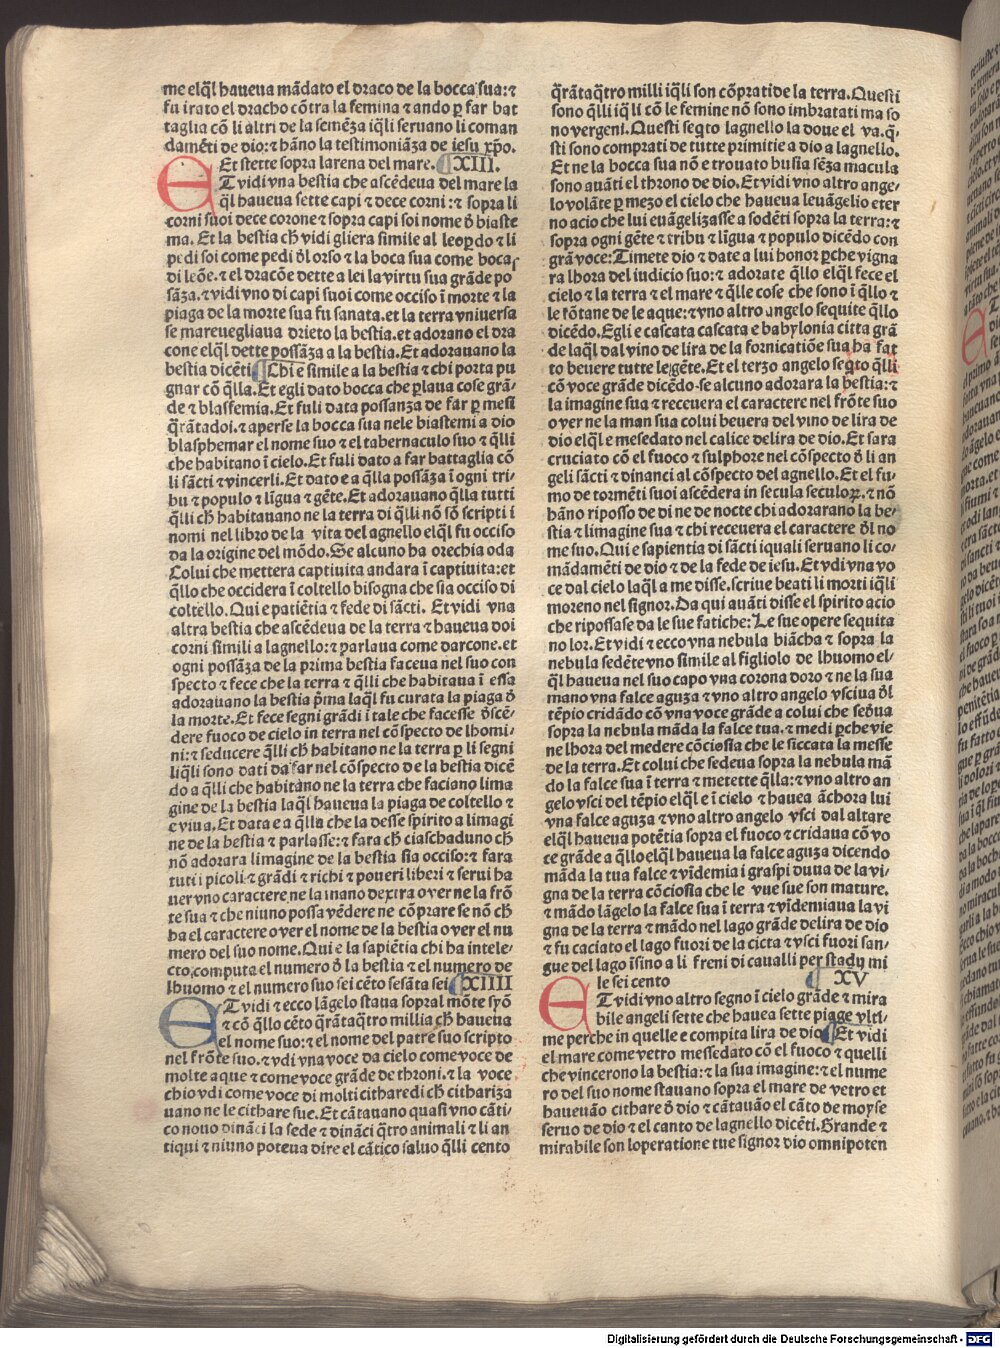 me elq̃l haueua mãdato el draco de la bocca sua: ⁊
fu irato el dracho cõtra la femina ⁊ ando ꝑ far bat
taglia cõ li altri de la semẽza iq̃li seruano li coman
damẽti de dio: ⁊ hãno la testimoniãza de iesu xp̃o.
Et stette sopra larena del mare. XIII.
ETvidi vna bestia che ascẽdeua del mare la
q̃l haueua sette capi ⁊ dece corni: ⁊ sopra li
corni suoi dece corone ⁊ sopra capi soi nome d̃ biaste
ma. Et la bestia ch̃ vidi gliera simile al leoꝑdo ⁊ li
pedi soi come pedi d̃l orso ⁊ la boca sua come boca
di leõe. ⁊ el dracõe dette a lei la virtu sua grãde po
sãza. ⁊ vidi vno di capi suoi come occiso ĩ morte ⁊ la
piaga de la morte sua fu sanata. et la terra vniuersa
se marauegliaua drieto la bestia. et adorano el dra
cone elq̃l dette possãza a la bestia. Et adorauano la
bestia dicẽti Chi e simile a la bestia ⁊ chi porta pu
gnar cõ q̃lla. Et egli dato bocca che ꝑlaua cose grã/
de ⁊ blasfemia. Et fuli data possanza de far ꝑ mesi
q̃rãtadoi. ⁊ aperse la bocca sua nele biastemi a dio
blasphemar el nome suo ⁊ el tabernaculo suo ⁊ q̃lli
che habitano ĩ cielo. Et fuli dato a far battaglia cõ
li sãcti ⁊ vincerli. Et dato e a q̃lla possãza ĩ ogni tri/
bu ⁊ populo ⁊ lĩgua ⁊ gẽte. Et adorauano q̃lla tutti
q̃lli ch̃ habitauano ne la terra di q̃lli nõ sõ scripti i
nomi nel libro de la vita del agnello elq̃l fu occiso
da la origine del mõdo. Se alcuno ha orechia oda
Colui che mettera captiuita andara ĩ captiuita: et
q̃llo che occidera ĩ coltello bisogna che sia occiso di
coltello. Qui e patiẽtia ⁊ fede di sãcti. Et vidi vna
altra bestia che ascẽdeua de la terra ⁊ haueua doi
corni simili a lagnello: ⁊ parlaua come darcone. et
ogni possãza de la prima bestia faceua nel suo con
specto ⁊ fece che la terra ⁊ q̃lli che habitaua ĩ essa
adorauano la bestia p̃ma laq̃l fu curata la piaga d̃
la morte. Et fece segni grãdi ĩ tale che facesse d̃scẽ/
dere fuoco de cielo in terra nel cõspecto de lhomi/
ni: ⁊ seducere q̃lli ch̃ habitano ne la terra ꝑ li segni
liq̃li sono dati da far nel cõspecto de la bestia dicẽ
do a q̃lli che habitano ne la terra che faciano lima
gine de la bestia laq̃l haueua la piaga de coltello ⁊
e viua. Et data e a q̃lla che la desse spirito a limagi
ne de la bestia ⁊ parlasse: ⁊ fara ch̃ ciaschaduno ch̃
nõ adorara limagine de la bestia sia occiso: ⁊ fara
tuti i picoli ⁊ grãdi ⁊ richi ⁊ poueri liberi ⁊ serui ha
uer vno caractere ne la mano dextra over ne la frõ
te sua ⁊ che niuno possa vẽdere ne cõprare se nõ ch̃
ha el caractere over el nome de la bestia o ver el nu
mero del suo nome. Qui e la sapiẽtia chi ha intele/
cto, computa el numero d̃ la bestia ⁊ el numero de
lhuomo ⁊ el numero suo sei cẽto sesãta sei XIIII
ETvidi ⁊ ecco lãgelo staua sopral mõte syõ
⁊ cõ q̃llo cẽto q̃rãtaq̃tro millia ch̃ haueua
el nome suo: ⁊ el nome del patre suo scripto
nel frõte suo. ⁊ vdi vna voce da cielo come voce de
molte aque ⁊ come voce grãde de throni. ⁊ la voce
chio vdi come voce di molti citharedi ch̃ cithariza
uano ne le cithare sue. Et cãtauano quasi vno cãti/
co nouo dinãci la sede ⁊ dinãci q̃tro animali ⁊ li an
tiqui ⁊ niuno poteua dire el cãtico saluo q̃lli cento
q̃rãtaq̃tro milli iq̃li son cõprati de la terra. Questi
sono q̃lli iq̃li cõ le femine nõ sono imbratati ma so
no vergeni. Questi seq̃to lagnello la doue el va. q̃/
sti sono comprati de tutte primitie a dio a lagnello.
Et ne la bocca sua nõ e trouato busia sẽza macula
sono auãti el throno de dio. Et vidi vno altro ange/
lo volãte ꝑ mezo el cielo che haueua leuãgelio eter
no acio che lui euãgelizasse a sodẽti sopra la terra: ⁊
sopra ogni gẽte ⁊ tribu ⁊ lĩgua ⁊ populo dicẽdo con
grã voce: Timete dio ⁊ date a lui honor ꝑche vigna
ra lhora del iudicio suo: ⁊ adorate q̃llo elq̃l fece el
cielo ⁊ la terra ⁊ el mare ⁊ q̃lle cose che sono ĩ q̃llo ⁊
le fõtane de le aque: ⁊ vno altro angelo sequite q̃llo
dicẽdo. Egli e cascata cascata e babylonia citta grã
de laq̃l dal vino de lira de la fornicatiõe sua ha fat
to beuere tutte le gẽte. Et el terzo angelo seq̃to q̃lli
cõ voce grãde dicẽdo. se alcuno adorara la bestia: ⁊
la imagine sua ⁊ receuera el caractere nel frõte suo
o ver ne la man sua colui beuera del vino de lira de
dio elq̃l e mesedato nel calice de lira de dio. Et sara
cruciato cõ el fuoco ⁊ sulphore nel cõspecto d̃ li an
geli sãcti ⁊ dinanci al cõspecto del agnello. Et el fu/
mo de tormẽti suoi ascẽdera in secula seculoꝝ. ⁊ nõ
hãno riposso de di ne de nocte chi adorarano la be/
stia ⁊ limagine sua ⁊ chi receuera el caractere d̃l no
me suo. Qui e sapientia di sãcti iquali seruano li co/
mãdamẽti de dio ⁊ de la fede de iesu. Et vdi vna vo
ce dal cielo laq̃l a me disse. scriue beati li morti iq̃li
moreno nel signor. Da qui auãti disse el spirito acio
che ripossase da le sue fatiche: Le sue opere sequita
no lor. Et vidi ⁊ ecco vna nebula biãcha ⁊ sopra la
nebula sedẽte vno simile al figliolo de lhuomo el/
q̃l haueua nel suo capo vna corona doro ⁊ ne la sua
mano vna falce aguza ⁊ vno altro angelo vsciua d̃l
tẽpio cridãdo cõ vna voce grãde a colui che sed̃ua
sopra la nebula mãda la falce tua. ⁊ medi ꝑche vie
ne lhora del medere cõciosia che le siccata la messe
de la terra. Et colui che sedeua sopra la nebula mã
do la falce sua ĩ terra ⁊ metette q̃lla: ⁊ vno altro an
gelo vsci del tẽpio elq̃l e ĩ cielo ⁊ hauea ãchora lui
vna falce aguza ⁊ vno altro angelo vsci dal altare
elq̃l haueua potẽtia sopra el fuoco ⁊ cridaua cõ vo
ce grãde a q̃llo elq̃l haueua la falce aguza dicendo
mãda la tua falce ⁊ vĩdemia i graspi duua de la vi/
gna de la terra cõciosia che le vue sue son mature.
⁊ mãdo lãgelo la falce sua ĩ terra ⁊ vĩdemiaua la vi
gna de la terra ⁊ mãdo nel lago grãde de lira de dio
⁊ fu caciato el lago fuori de la cicta ⁊ vsci fuori san/
gue del lago ĩsino a li freni di caualli per stady mi
le sei cento XV
ETvidi vno altro segno ĩ cielo grãde ⁊ mira
bile angeli sette che hauea sette piage vlti/
me perche in quelle e compita lira de dio Et vidi
el mare come vetro messedato cõ el fuoco ⁊ quelli
che vincerono la bestia: ⁊ la sua imagine: ⁊ el nume
ro del suo nome stauano sopra el mare de vetro et
haueuão cithare d̃ dio ⁊ cãtauão el cãto de moyse
seruo de dio ⁊ el canto de lagnello dicẽti. Grande ⁊
mirabile son loperatione tue signor dio omnipoten
Digitalisierung gefördert durch die Deutsche Forschungsgemeinschaft - DFG